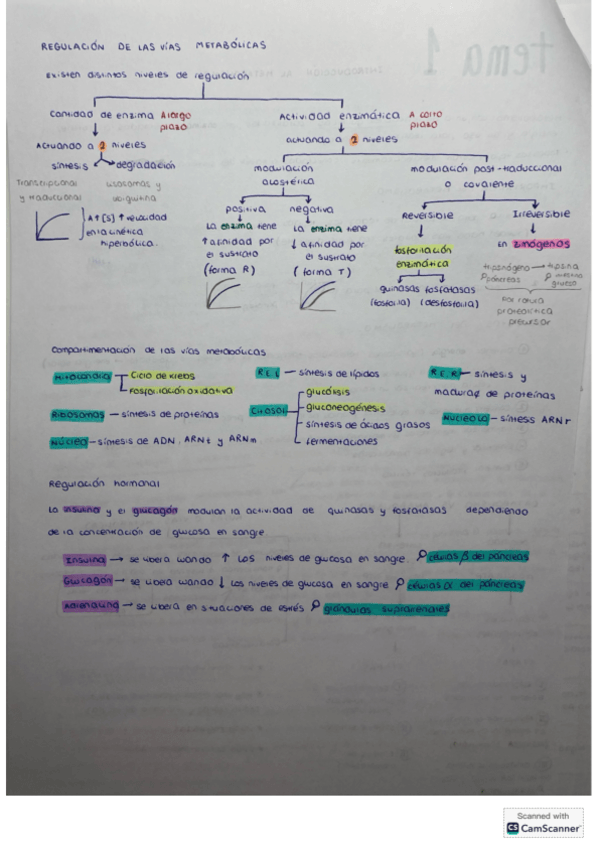 REGULACIÓN DE LAS VÍAS METABÓLICAS
Existen distintos niveles de regulación
Cantidad de enzima A largo plazo
Actuando a 2 niveles
síntesis degradación
Transcripcional y traduccional
lisosomas y ubiquitina
A ↑ [S] ↑ velocidad
en la cinética
hiperbólica.
Actividad enzimática A corto plazo
actuando a 2 niveles
modulación
alostética
positiva
La enzima tiene
↑ afinidad por
el sustrato
(forma R)
negativa
La enzima tiene
↓ afinidad por
el sustrato
(forma T)
modulación post-traduccional
o covalente
Reversible
fosforilación
enzimática
quinasas fosfatasas
(fosforila) (desfosforila)
Irreversible
en zimógenos
tripsinógeno → tripsina
páncreas
por rotura
proteolítica
precursor
Compartimentación de las vías metabólicas
Mitocondria Ciclo de Krebs
Fosforilación oxidativa
Ribosomas - síntesis de proteínas
Núcleo - síntesis de ADN, ARNt y ARNm
R.E.L - síntesis de lípidos
Citosol glucólisis
gluconeogénesis
síntesis de ácidos grasos
fermentaciones
R.E.R - síntesis y
madurac de proteínas
Nucleolo - síntesis ARNr
Regulación hormonal
La insulina y el glucagón modulan la actividad de quinasas y fosfatasas dependiendo
de la concentración de glucosa en sangre.
Insulina → se libera cuando ↑ los niveles de glucosa en sangre células β del páncreas
Glucagón → se libera cuando ↓ los niveles de glucosa en sangre células α del páncreas
Adrenalina → se libera en situaciones de estrés glándulas suprarrenales
tema 1
Scanned with
CS CamScanner